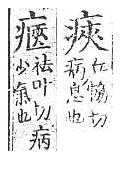 㾜
丘協切
病息也
祛叶切病
少氣也